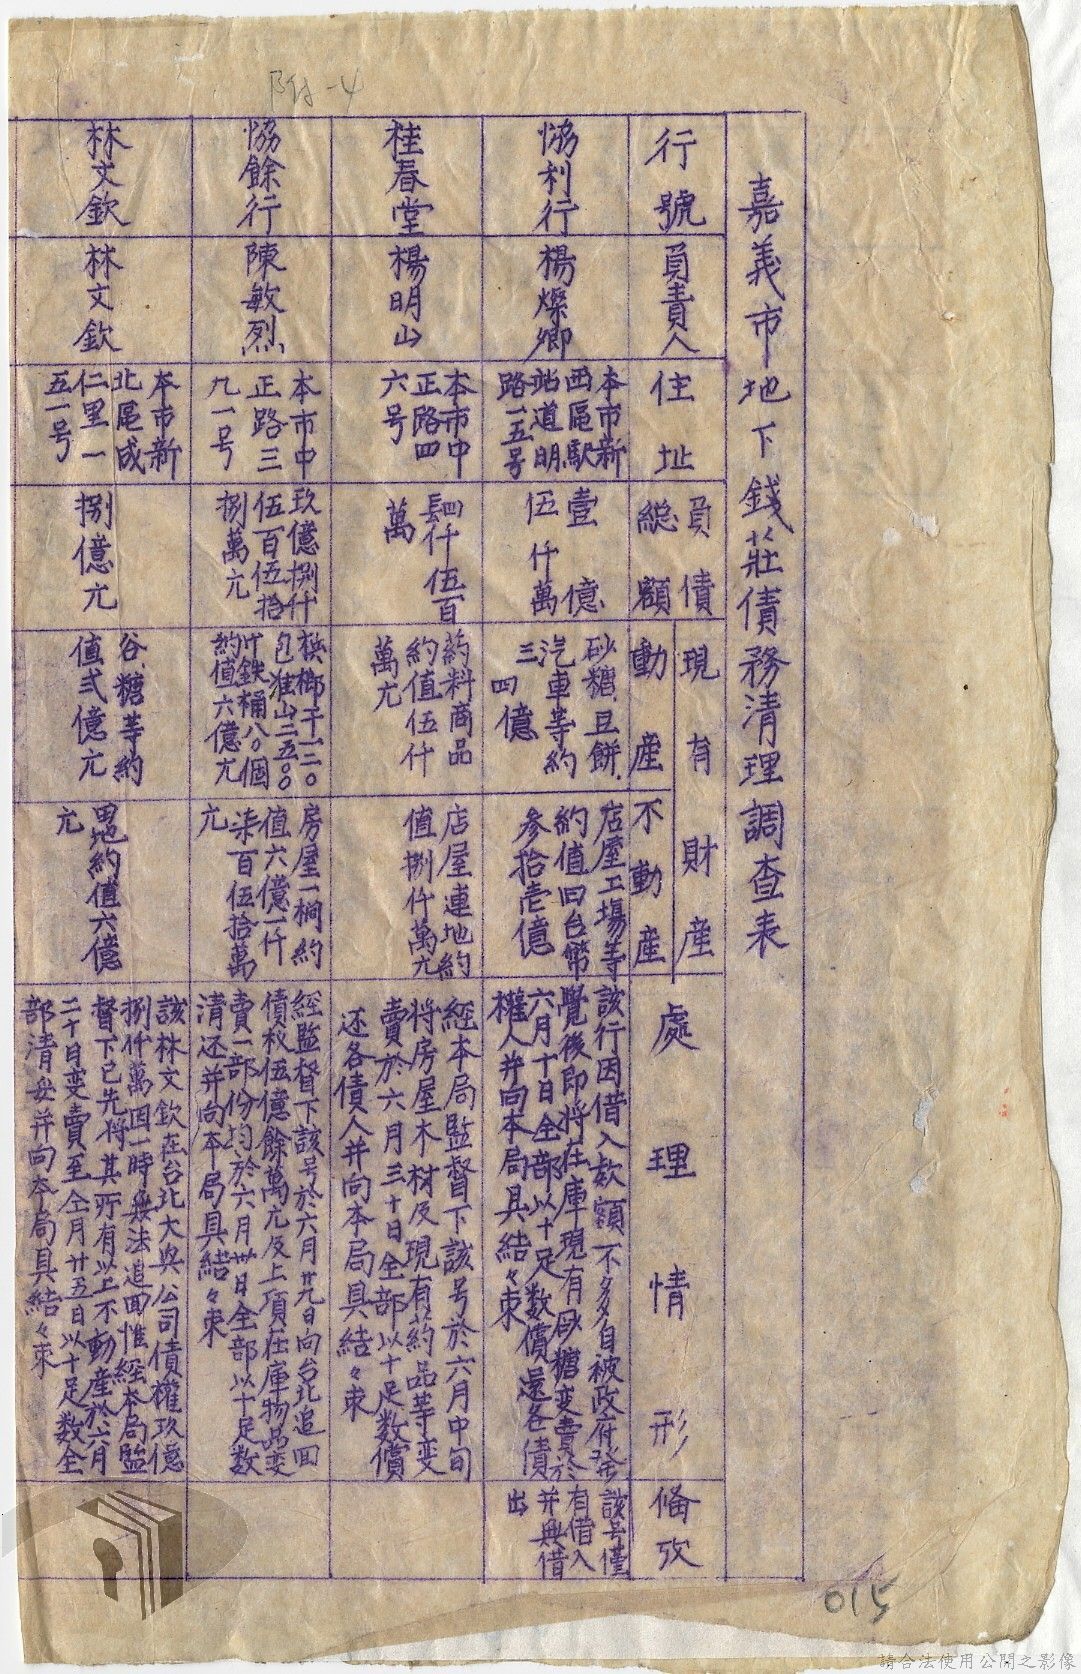 附-4
嘉義市地下錢莊債務清理調查表
行號
負責人
住址
負債
總額
現有財產
動產
不動產
處理情形
備攷
協利行
楊燦卿
本市新
西區馱
站道明
路一五号
壹億
伍仟萬
砂糖豆餅.
汽車等約
三四億
店屋工場等
約值旧台幣
参拾壱億
該行因借入款額不多自被政府発
覺後即將在庫現有砂糖变賣於
六月十日全部以十足数償還各債
權人并向本局具結々束
該号僅
有借入
并無借
出
桂春堂
楊明山
本市中
正路四
六号
四仟伍百
萬
葯料商品
約值伍仟
萬元
店屋連地約
值捌仟萬元
經本局監督下該号於六月中旬
將房屋木材及現有葯品等变
賣於六月三十日全部以十足数償
还各債人并向本局具結々束
協餘行
陳敏烈
本市中
正路三
九一号
玖億捌仟
伍百伍拾
捌萬元
檳榔干一三〇
包淮山二五〇〇
个鉄桶八〇個
約值六億元
房屋一棟約
值六億一仟
柒百伍拾萬
元
經監督下該号於六月廿九日向台北追回
債权伍億餘萬元及上項在庫物品变
賣一部份均於六月卅日全部以十足数
清还并向本局具結々束
林文欽
林文欽
本市新
北區成
仁里一
五一号
捌億元
谷.糖等約
值弍億元
田地約值六億
元
該林文欽在台北大央公司債權玖億
捌仟萬因一時無法追回惟經本局監
督下已先將其所有以上不動產於六月
二十日变賣至仝月廿五日以十足数全
部清安并向本局具結々束
015
請合法使用公開之影像